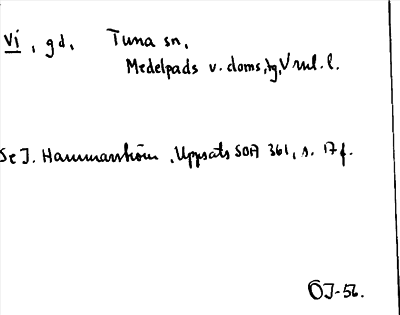 Vi, gd, Tuna sn,
Medelpads v. doms,tg, Vrnl. l.
Se J. Hammarström, Uppsats SOA 361, s. 17 f.
ÖJ-56.